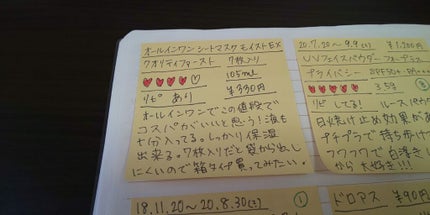 オールインワン シートマスク モイストEX
クオリティファースト 7枚入り
♥♥♥♥♡ 105ml
リピ あり ¥330円
オールインワンでこの値段で
コスパがいいと思う!液も
十分入ってる。しっかり保湿
出来る。7枚入りだと袋から出し
にくいので箱タイプ買ってみたい。
20.7.20 〜 9.9(水) ¥1,200円
UVフェイスパウダー フォープラス
プライバシー SPF50+ PA++++
♥♥♥♥♥ 3.5g
リピ してる! ルースパウダー
日焼け止め効果があ
プチプラで持ち歩け
フワフワで白浮き
から大好き!!
18.11.20 〜 20.8.30(日) ①
ドロアス ¥90円